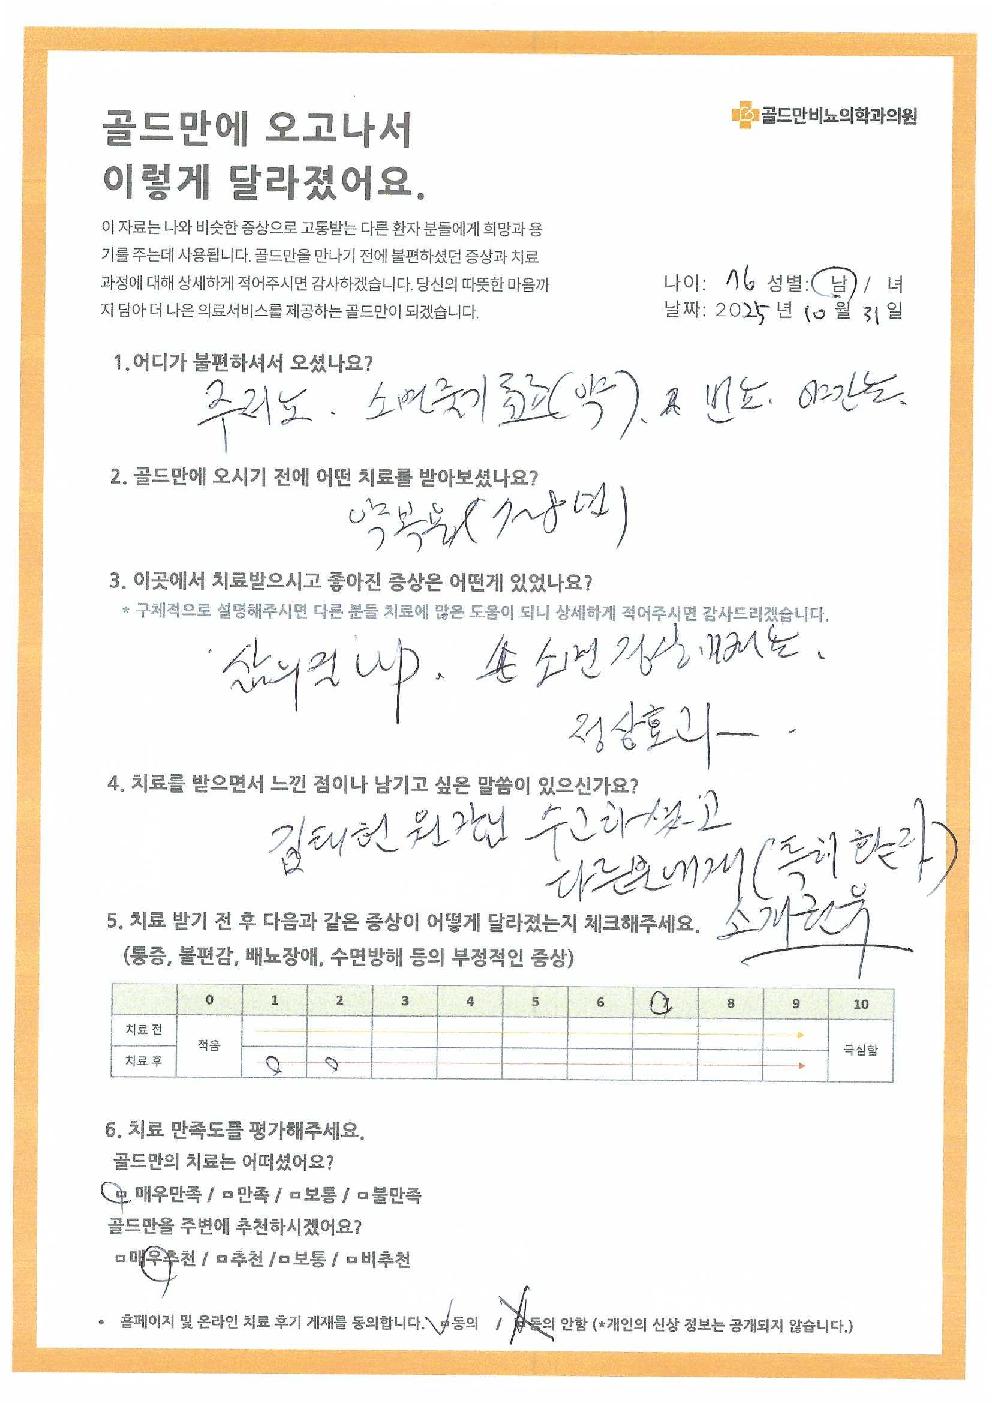 골드만에 오고나서
이렇게 달라졌어요.
골드만비뇨의학과의원
이 자료는 나와 비슷한 증상으로 고통받는 다른 환자 분들에게 희망과 용
기를 주는데 사용됩니다. 골드만을 만나기 전에 불편하셨던 증상과 치료
과정에 대해 상세하게 적어주시면 감사하겠습니다. 당신의 따뜻한 마음까
지 담아 더 나은 의료서비스를 제공하는 골드만이 되겠습니다.
나이: 76 성별: 남 / 녀
날짜: 2025 년 10 월 31 일
1.어디가 불편하셔서 오셨나요?
소변줄기 (약). 빈뇨. 야간뇨.
2. 골드만에 오시기 전에 어떤 치료를 받아보셨나요?
약복용
3. 이곳에서 치료받으시고 좋아진 증상은 어떤게 있었나요?
* 구체적으로 설명해주시면 다른 분들 치료에 많은 도움이 되니 상세하게 적어주시면 감사드리겠습니다.
삶의 질 up. 소변 정상
정상효과
4. 치료를 받으면서 느낀 점이나 남기고 싶은 말씀이 있으신가요?
김태헌 원장님 수고하셨고
다른분에게 (특히 환자)
소개권유
5. 치료 받기 전 후 다음과 같은 증상이 어떻게 달라졌는지 체크해주세요.
(통증, 불편감, 배뇨장애, 수면방해 등의 부정적인 증상)
0 1 2 3 4 5 6 7 8 9 10
치료 전
적음
극심함
치료 후
6. 치료 만족도를 평가해주세요.
골드만의 치료는 어떠셨어요?
매우만족 / 만족 / 보통 / 불만족
골드만을 주변에 추천하시겠어요?
매우추천 / 추천 / 보통 / 비추천
• 홈페이지 및 온라인 치료 후기 게재를 동의합니다. 동의 / 동의 안함 (*개인의 신상 정보는 공개되지 않습니다.)